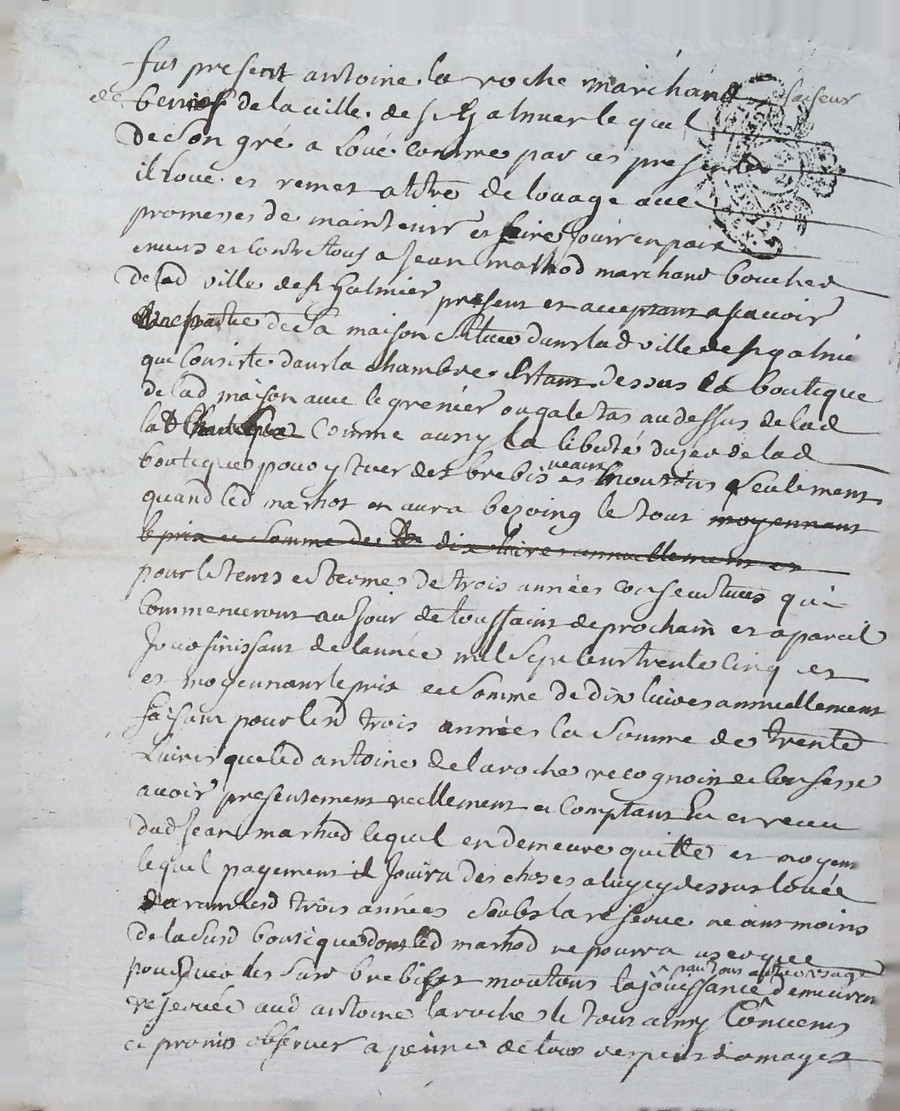 fut present antoine la roche marchand faiseur
de de la ville de st Galmier lequel
de son gré a Loué comme par ces presentes
il Loue et remet a titre de louage avec
promesses de maintenir et faire Jouir en paix
envers et contre tous a Jean mathod marchand boucher
de lad ville de st Galmier present et acceptant ascavoir
une partie de sa maison scituee dans lad ville de st galmier
qui Consiste dans la Chambre estant dessus la boutique
de lad maison avec le grenier ou galetas au dessus de lad
lad Comme aussy la liberté du jeu de lad
boutique pour y tuer des brebis veaux et moutons seulement
quand led mathod en aura besoing le tout moyennant
le prix et Somme de dix Livres annuellement et
pour le tems et terme de trois années consecutives qui
Commenceront au Jour de toussaint de prochain et a pareil
Jour finissant de lannée mil Sept Cent trente Cinq et
et moyennant le prix et Somme de dix livres annuellement
faisant pour lesd trois années la Somme de trente
Livres que led antoine de laroche recognoit et Confesse
avoir presentement reellement et Comptant Eu et receu
dud Jean mathod lequel en demeure quitte et moyen
lequel payement il Jouira des choses a luy cy dessus louée
Durant lesd trois années soubs la reserve neantmoins
de la susd boutique dont led mathod ne pourra user que
pour tuer les susd brebis et moutons la jouissance pour tous autres usage demeurera
reservée aud antoine laroche le tout ainsy Convenus
et promis observer a peine de tous despens domages